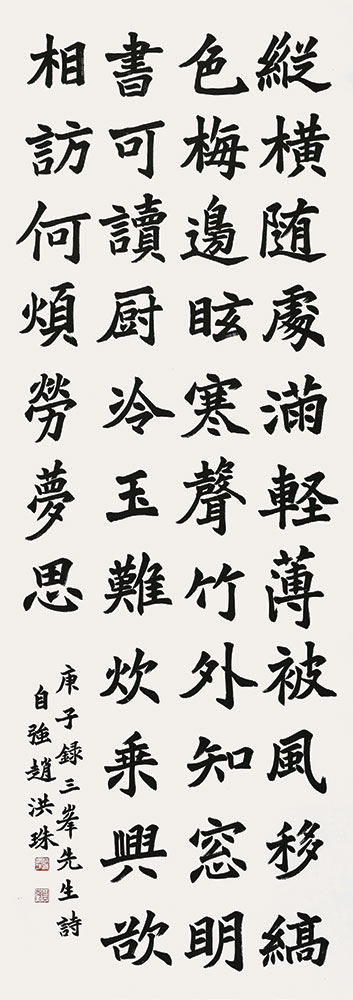 縱橫随處滿軽薄被風移縞
色梅邊眩寒聲竹外知窓明
書可讀厨冷玉難炊乗興欲
相訪何煩勞夢思
庚子録三峯先生詩
自強趙洪珠